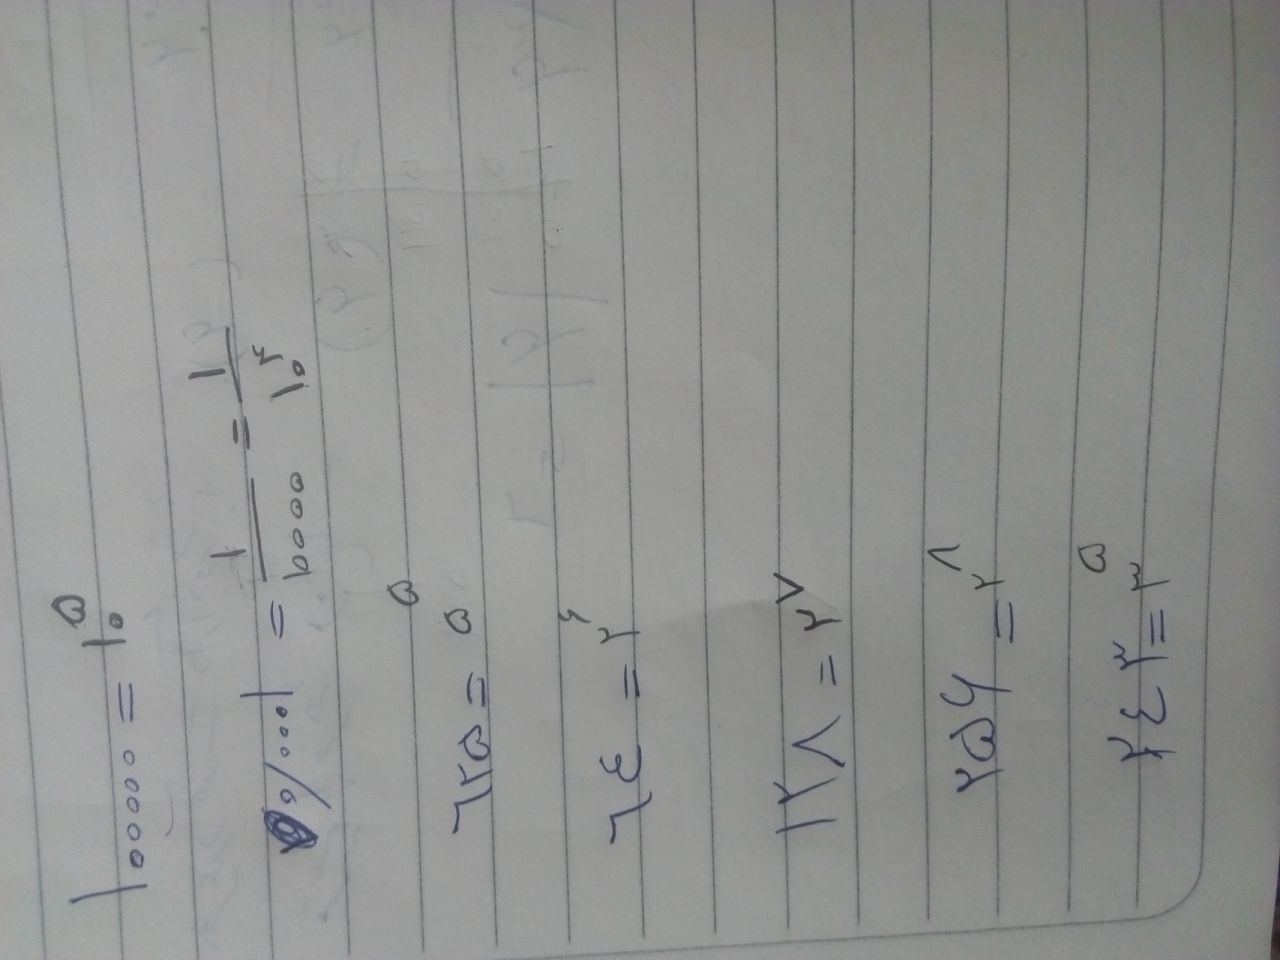 ۱۰۰۰۰۰ = ۱۰^۵
۰/۰۰۰۱ = ۱/۱۰۰۰۰ = ۱/۱۰^۳
۶۲۵ = ۵^۵
۶٤ = ۲^۶
۱۲۸ = ۲^۷
۲۵۶ = ۲^۸
۲٤۳ = ۳^۵